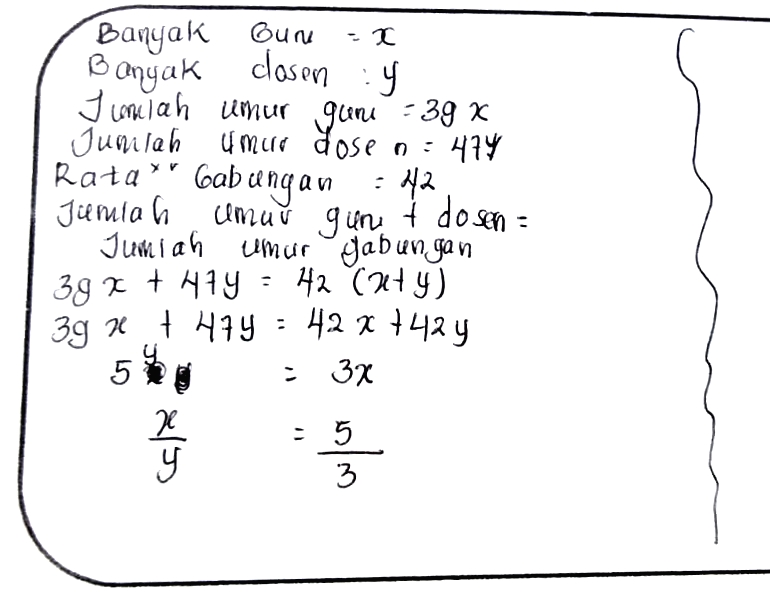 Banyak Guru = x
Banyak dosen : y
Jumlah umur guru = 39 x
Jumlah umur dosen = 47y
Rata" Gabungan = 42
Jumlah umur guru + dosen =
Jumlah umur gabungan
39 x + 47y = 42 (x+y)
39 x + 47y = 42x + 42y
5y = 3x
x/y = 5/3